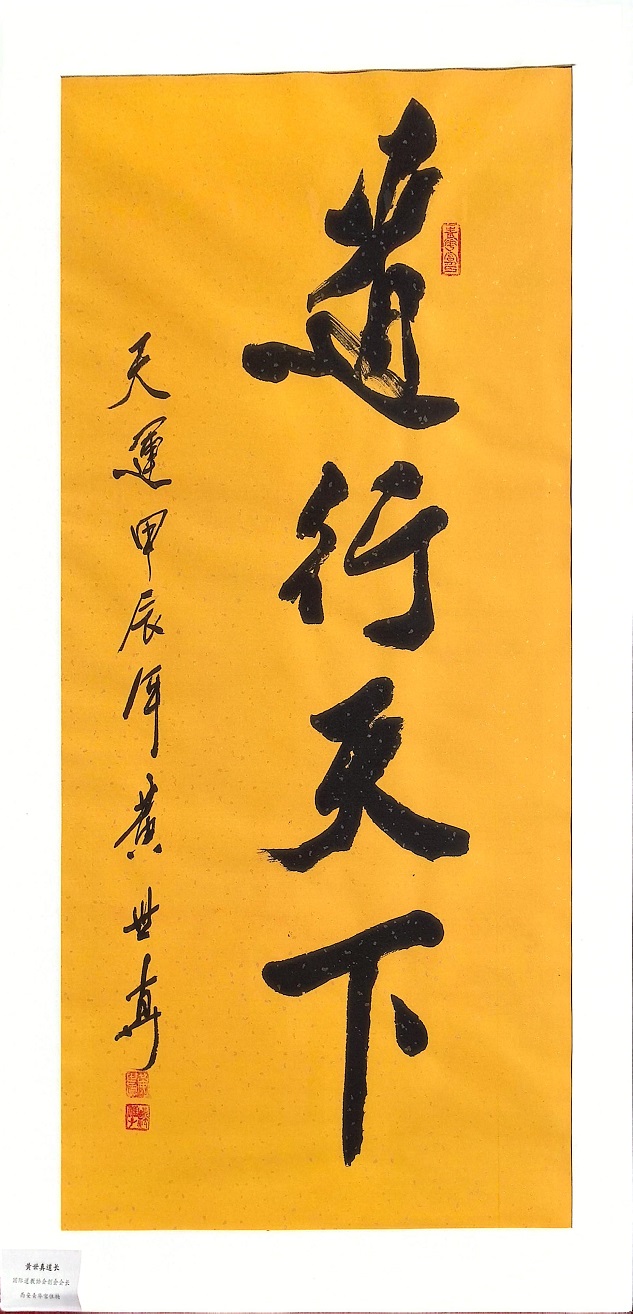 道行天下
天運甲辰年黄世真
黄世真道长
国际道教协会创会会长
西安青华宫住持